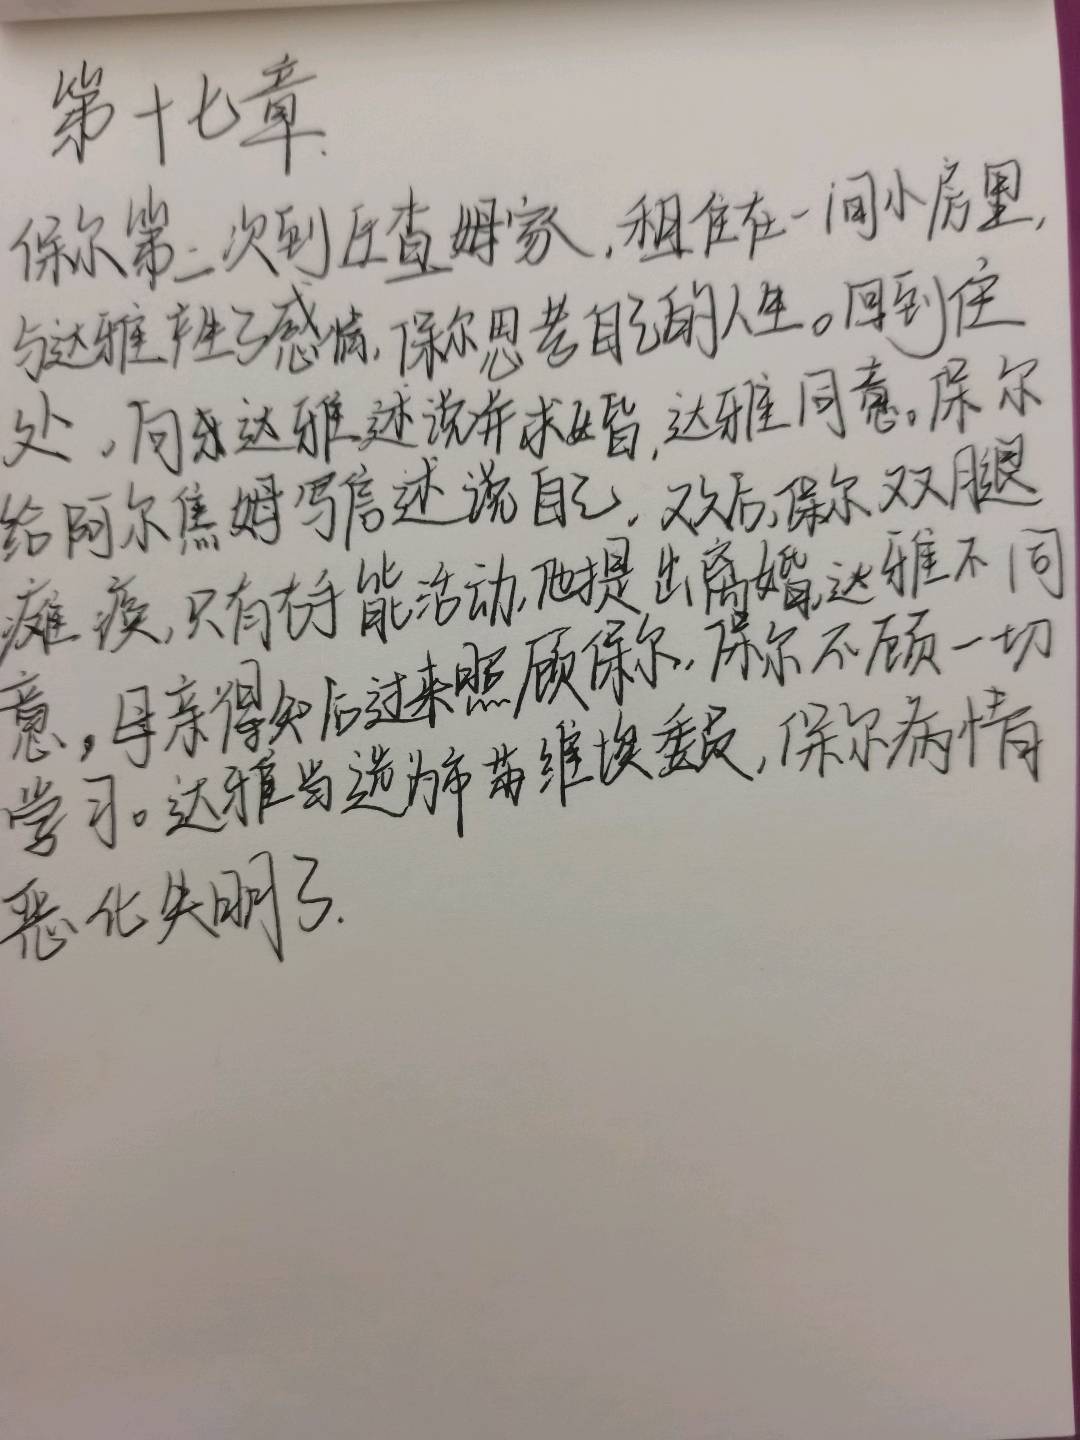 第十七章
保尔第二次到丘查姆家，租住在一间小房里，
与达雅产生了感情，保尔思考自己的人生。回到住
处，向达雅述说并求婚，达雅同意。保尔
给阿尔焦姆写信述说自己，双腿
瘫痪，只有右手能活动，他提出离婚，达雅不同
意，母亲得知后过来照顾保尔，保尔不顾一切
学习。达雅当选为市苏维埃委员，保尔病情
恶化失明了.